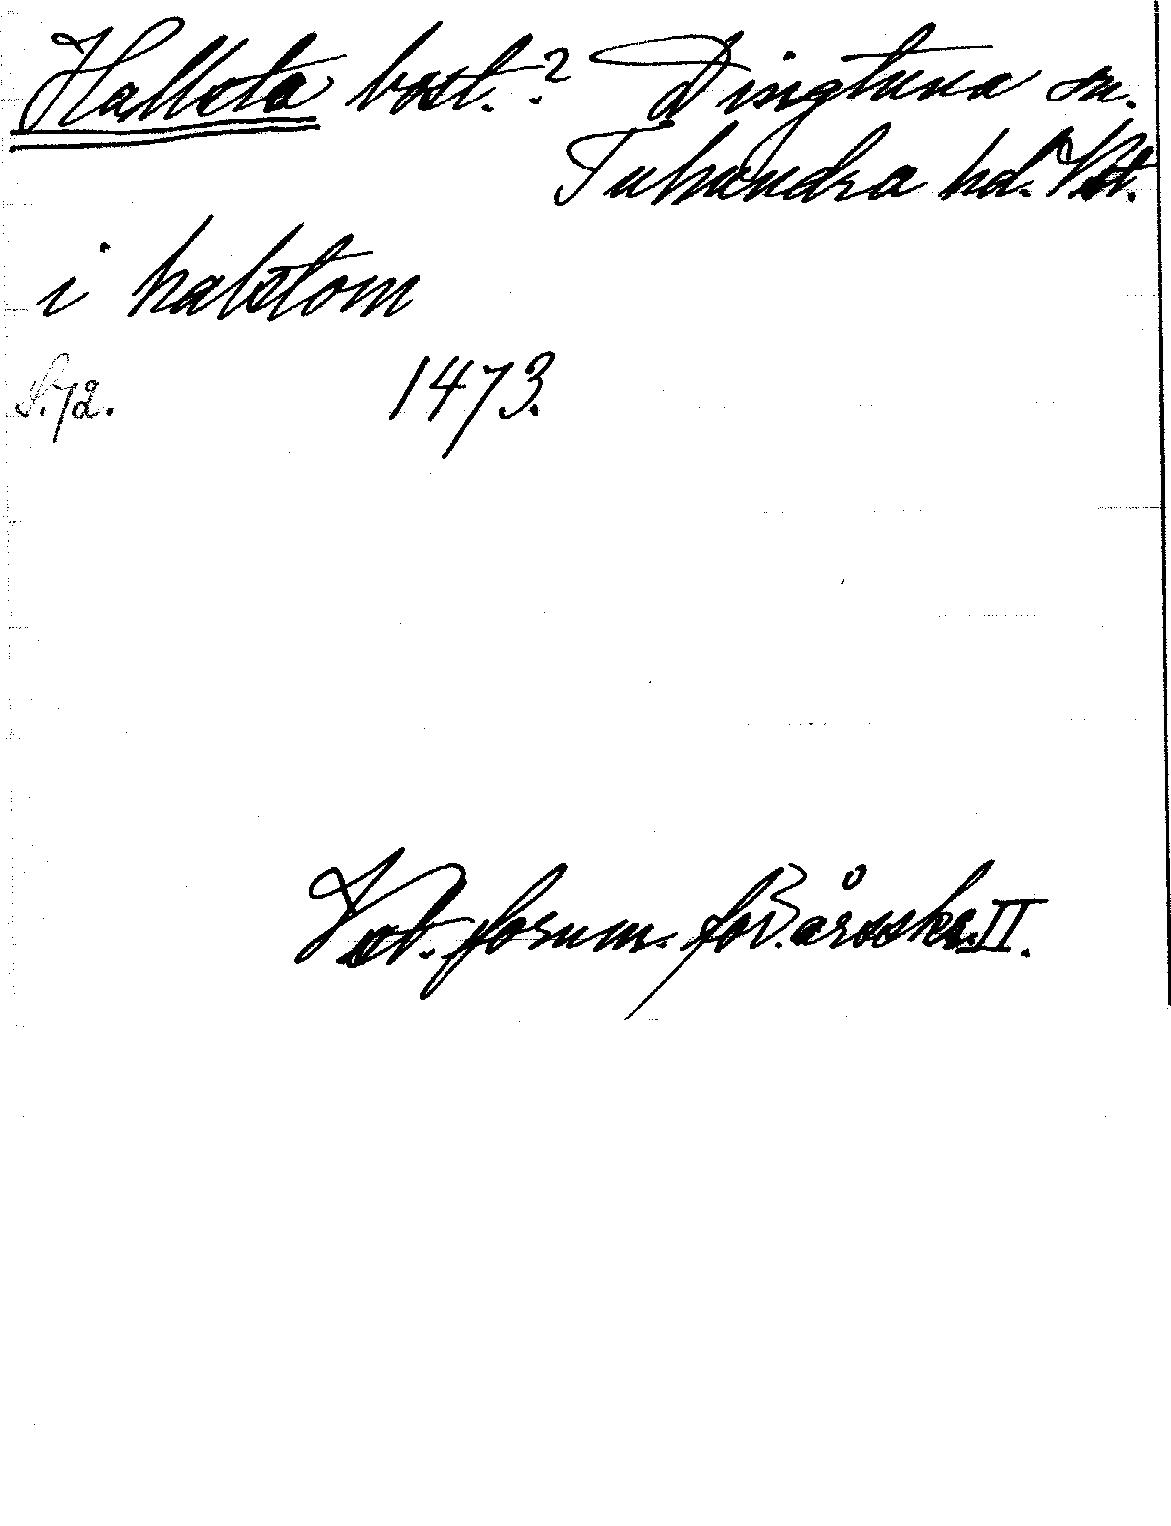 Hallsta bost.? Dingtuna sn.
Tuhundra hd. Vstl.
i halstom
S. 72. 1473.
Väst. fornm. för. årsskr. II.